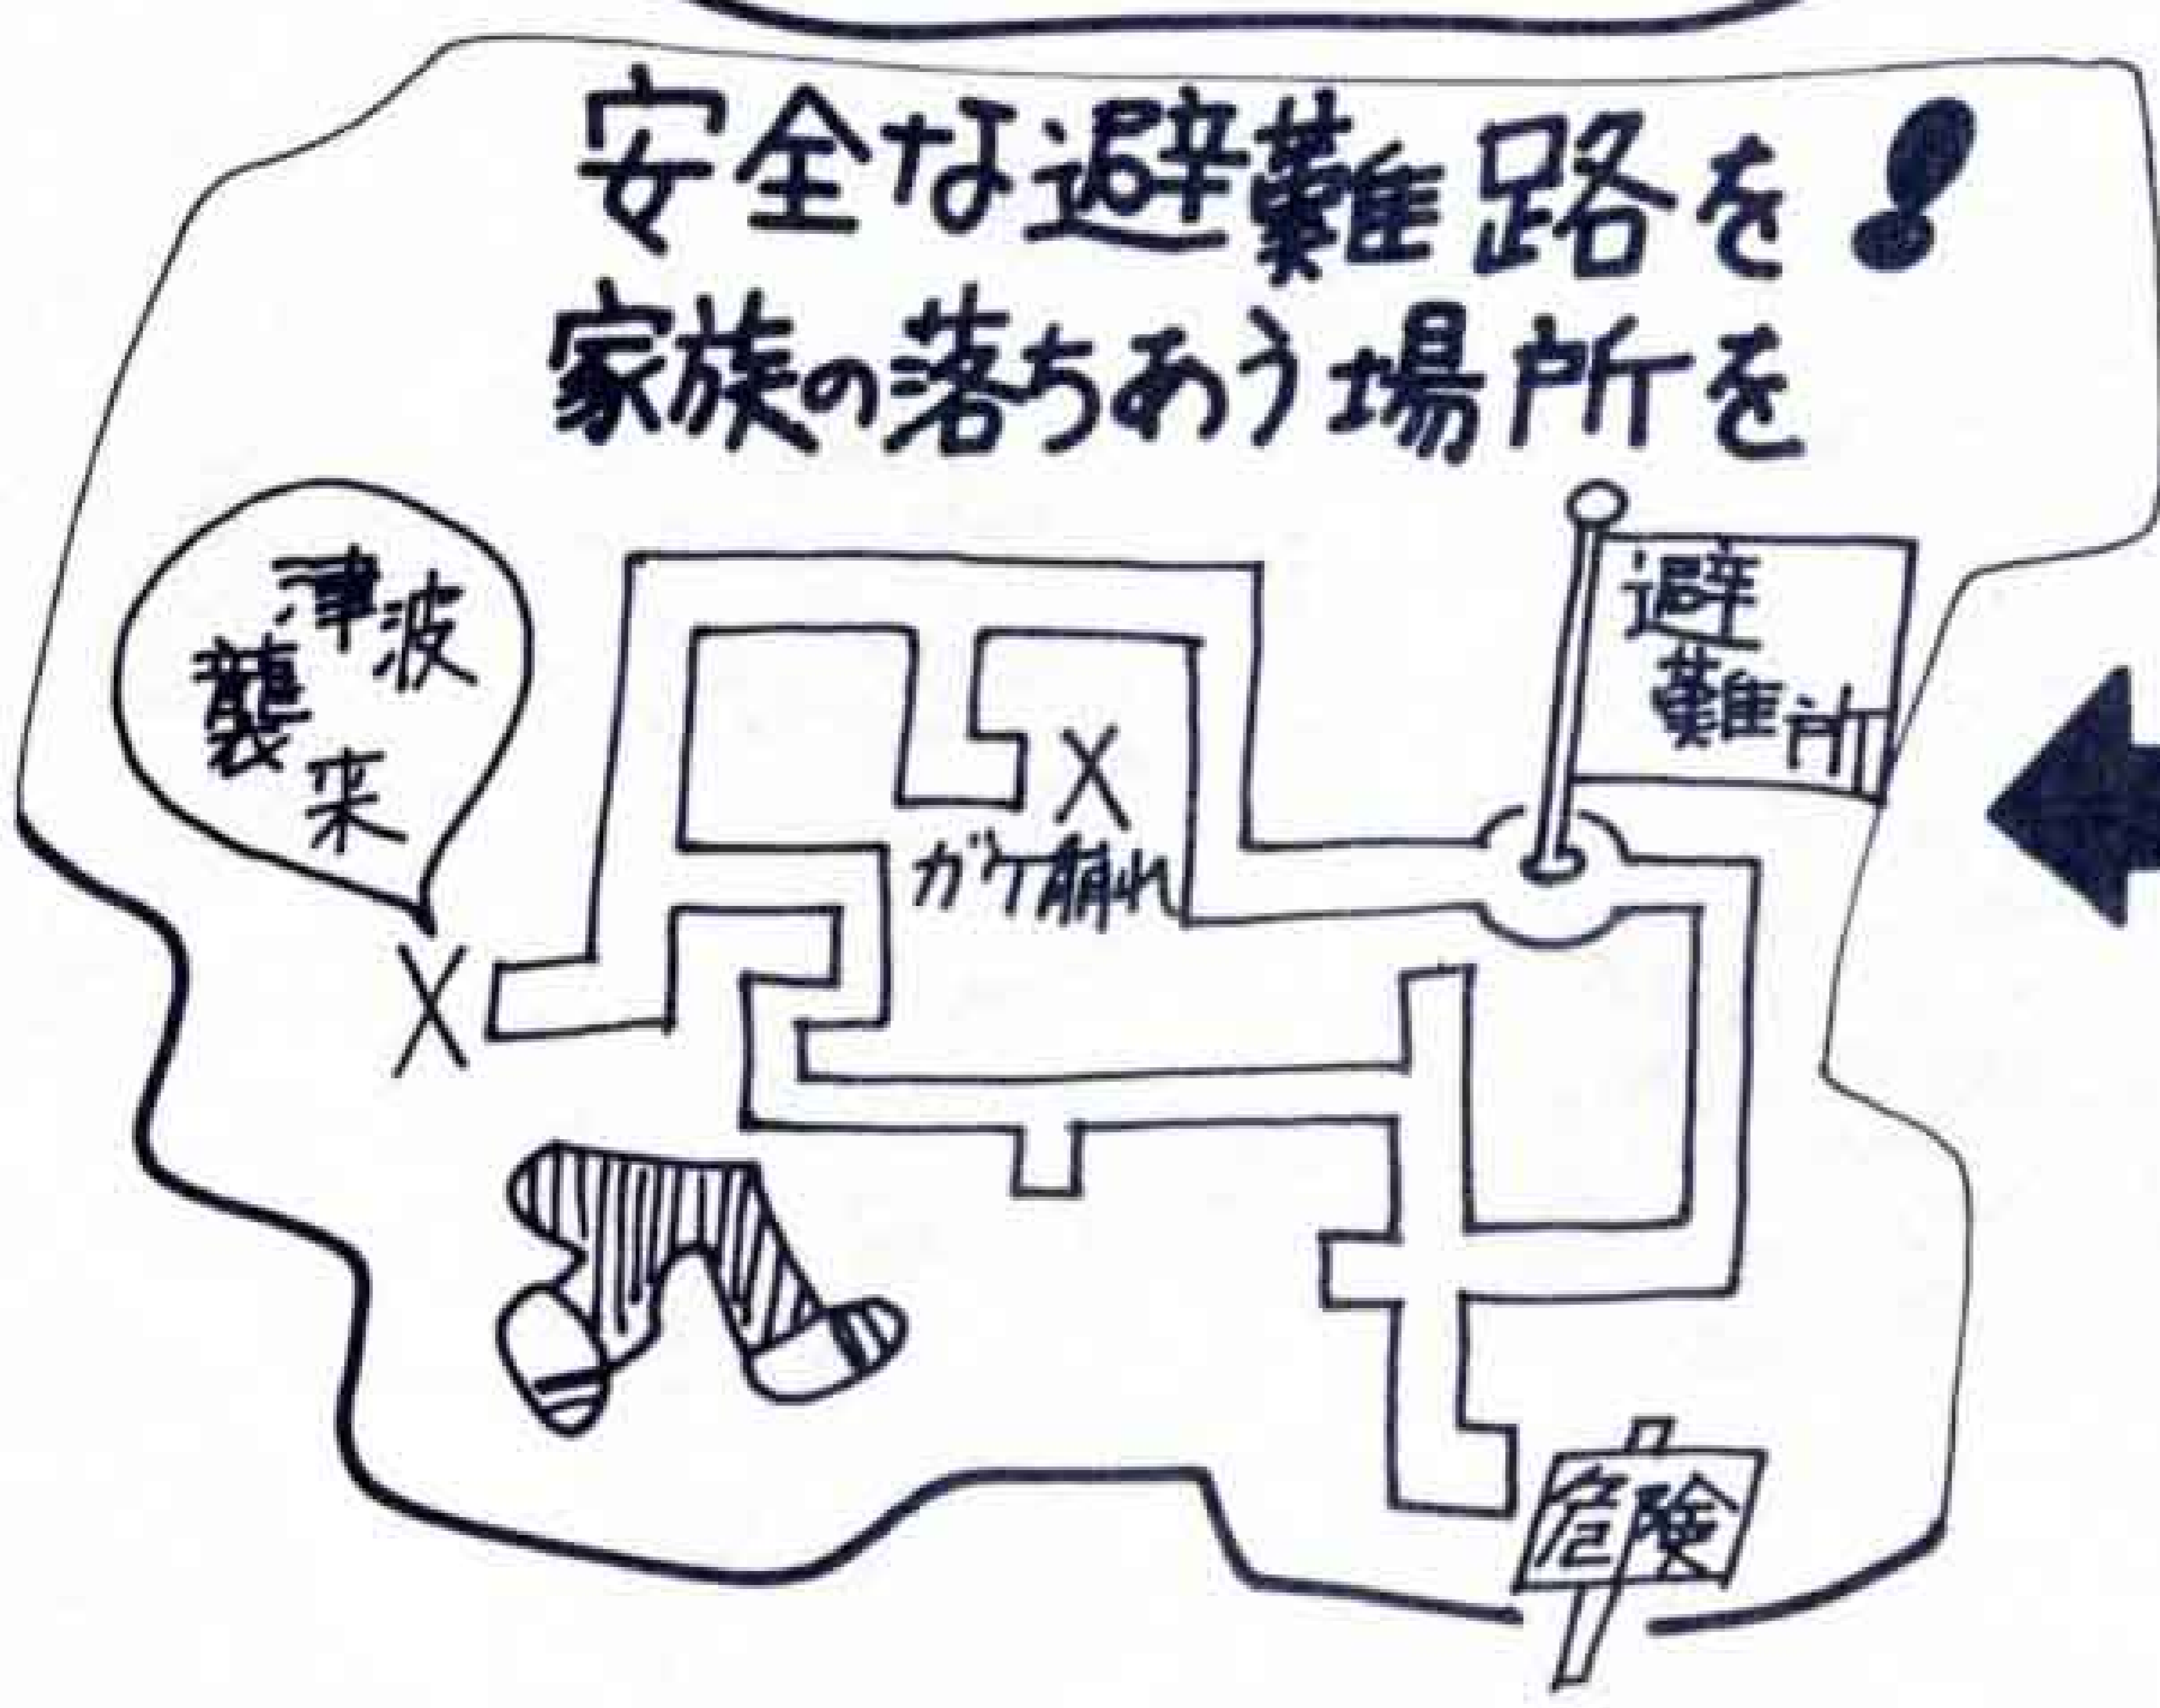 安全な避難路を!
家族の落ちあう場所を
津波
襲
来
避
難所
ガケ崩れ
危険